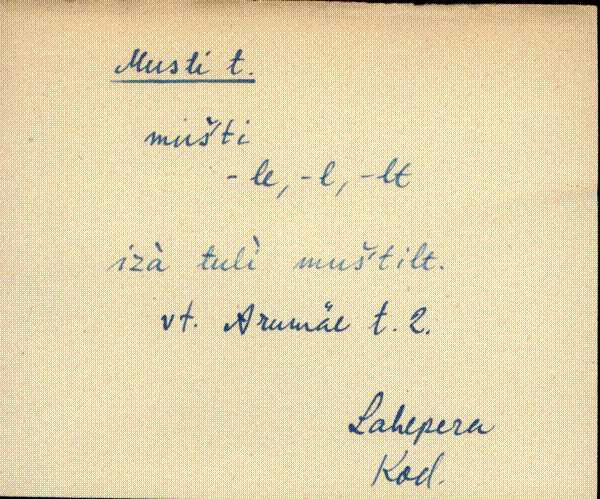 Musti t.
mušti
-le, -l, -lt
izà tulì muštilt.
vt. Arumäe t. 2.
Lahepera
Kod.